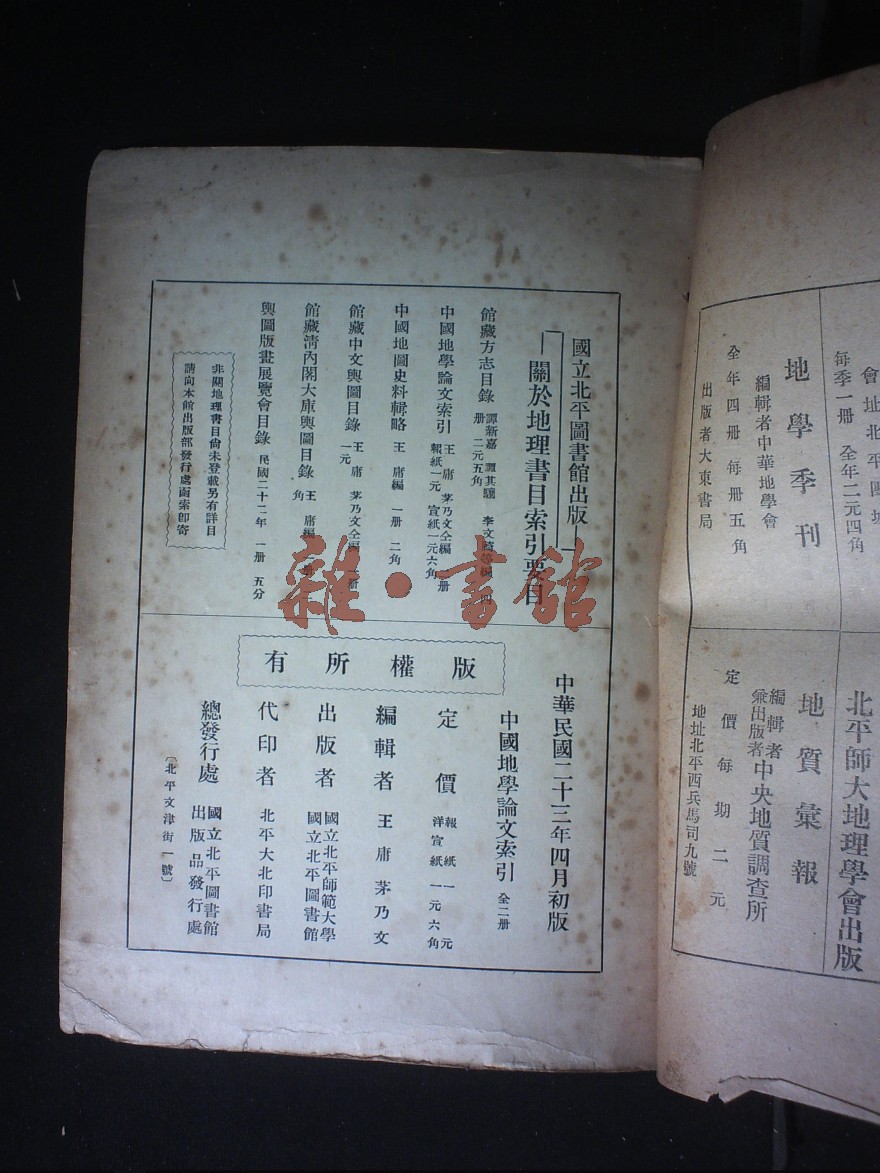 每季一册 全年二元四角
地學季刊
編輯者中華地學會
全年四册 每册五角
出版者大東書局
北平師大地理學會出版
地質彙報
編輯者
兼出版者中央地質調查所
定價每期二元
地址北平西兵馬司九號
國立北平圖書館出版
關於地理書目索引要目
館藏方志目錄 譚新嘉 譚其驤 李文
册 二元五角
中國地學論文索引 王庸 茅乃文仝編 册
報紙一元 宣紙一元六角
中國地圖史料輯略 王庸編 一册 二角
館藏中文輿圖目錄 王庸 茅乃文仝編 一册
一元
館藏清內閣大庫輿圖目錄 王庸編
角
輿圖版畫展覽會目錄 民國二十二年 一册 五分
非關地理書目尙未登載另有詳目
請向本館出版部發行處函索卽寄
雜·書館
中華民國二十三年四月初版
版權所有
中國地學論文索引 全二册
定價 報紙一元
洋宣紙一元六角
編輯者 王庸茅乃文
出版者 國立北平師範大學
國立北平圖書館
代印者 北平大北印書局
總發行處 國立北平圖書館
出版品發行處
〔北平文津街一號〕